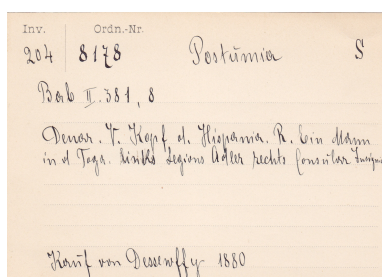 Inv. Ordn.-Nr.
204 8178 Postumia S
Bab II. 381, 8
Denar. V. Kopf d. Hispania. R. Ein Mann
in d Toga. links Legions Adler rechts Consular Insignie
Kauf von Dessewffy 1880